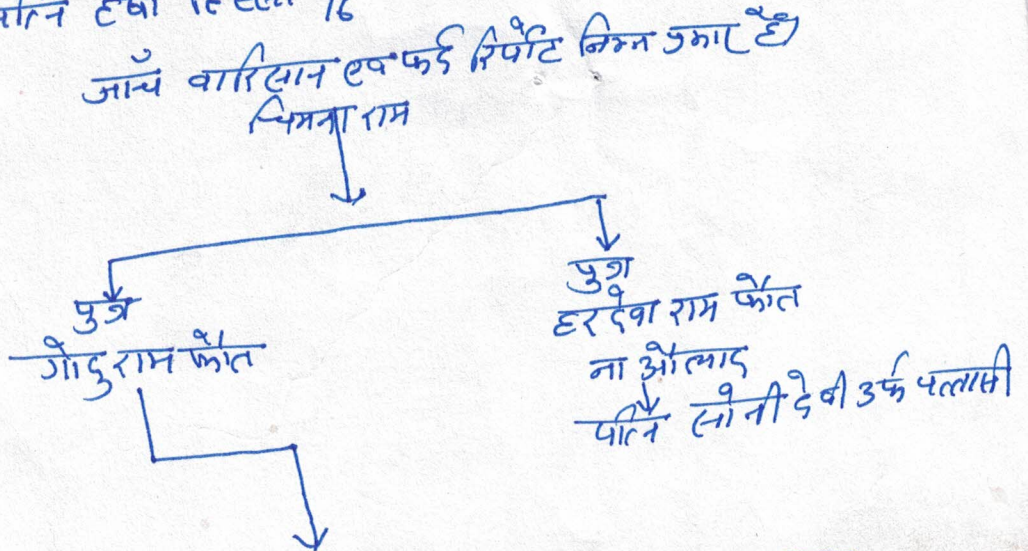 जाँच वारिसान एवं फर्द रिर्पोट निम्न प्रकार है।
चिमना राम
पुत्र
गोदुराम फौत
पुत्र
हरदेवा राम फौत
ना औलाद
पत्नि सोनी देवी उर्फ पतासी